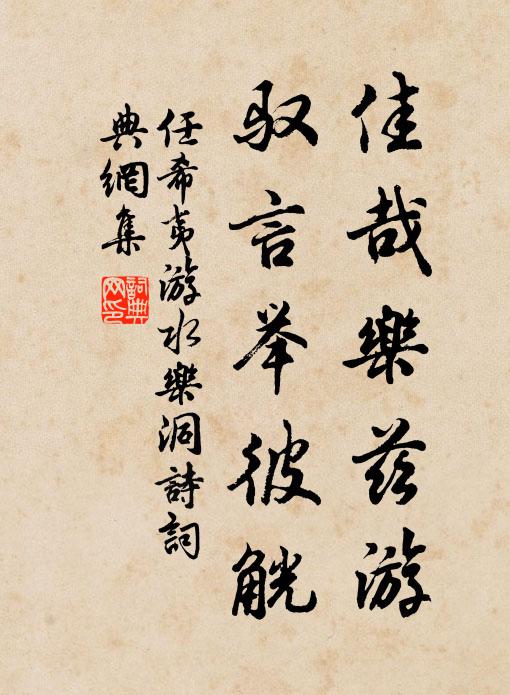 佳哉樂茲游
驭言举彼觥
任希夷游水樂洞詩詞
典網集
詞典
网印